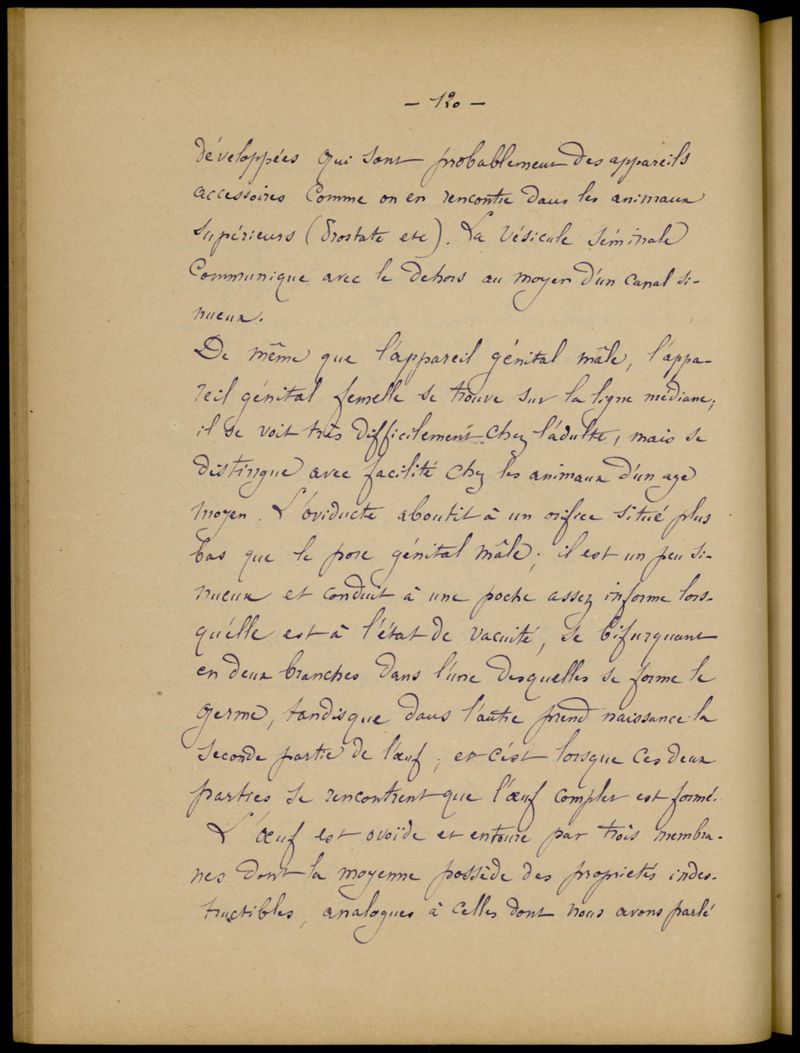 — 120 —
développées qui sont probablement des appareils
accessoires comme on en rencontre dans les animaux
supérieurs (Prostate etc). La vésicule séminale
communique avec le dehors au moyen d'un canal si-
nueux.
De même que l'appareil génital mâle, l'appa-
reil génital femelle se trouve sur la ligne médiane;
il se voit très difficilement chez l'adulte, mais se
distingue avec facilité chez les animaux d'un age
moyen. L'oviducte aboutit à un orifice situé plus
bas que le pore génital mâle; il est un peu si-
nueux et conduit à une poche assez informe lors-
qu'elle est à l'état de vacuité, se bifurquant
en deux branches dans l'une desquelles se forme le
germe, tandisque dans l'autre prend naissance la
seconde partie de l'œuf; et c'est lorsque ces deux
parties se rencontrent que l'œuf complet est formé.
L'œuf est ovoïde et entouré par trois membra-
nes dont la moyenne possède des propriétés indes-
tructibles, analogues à celles dont nous avons parlé